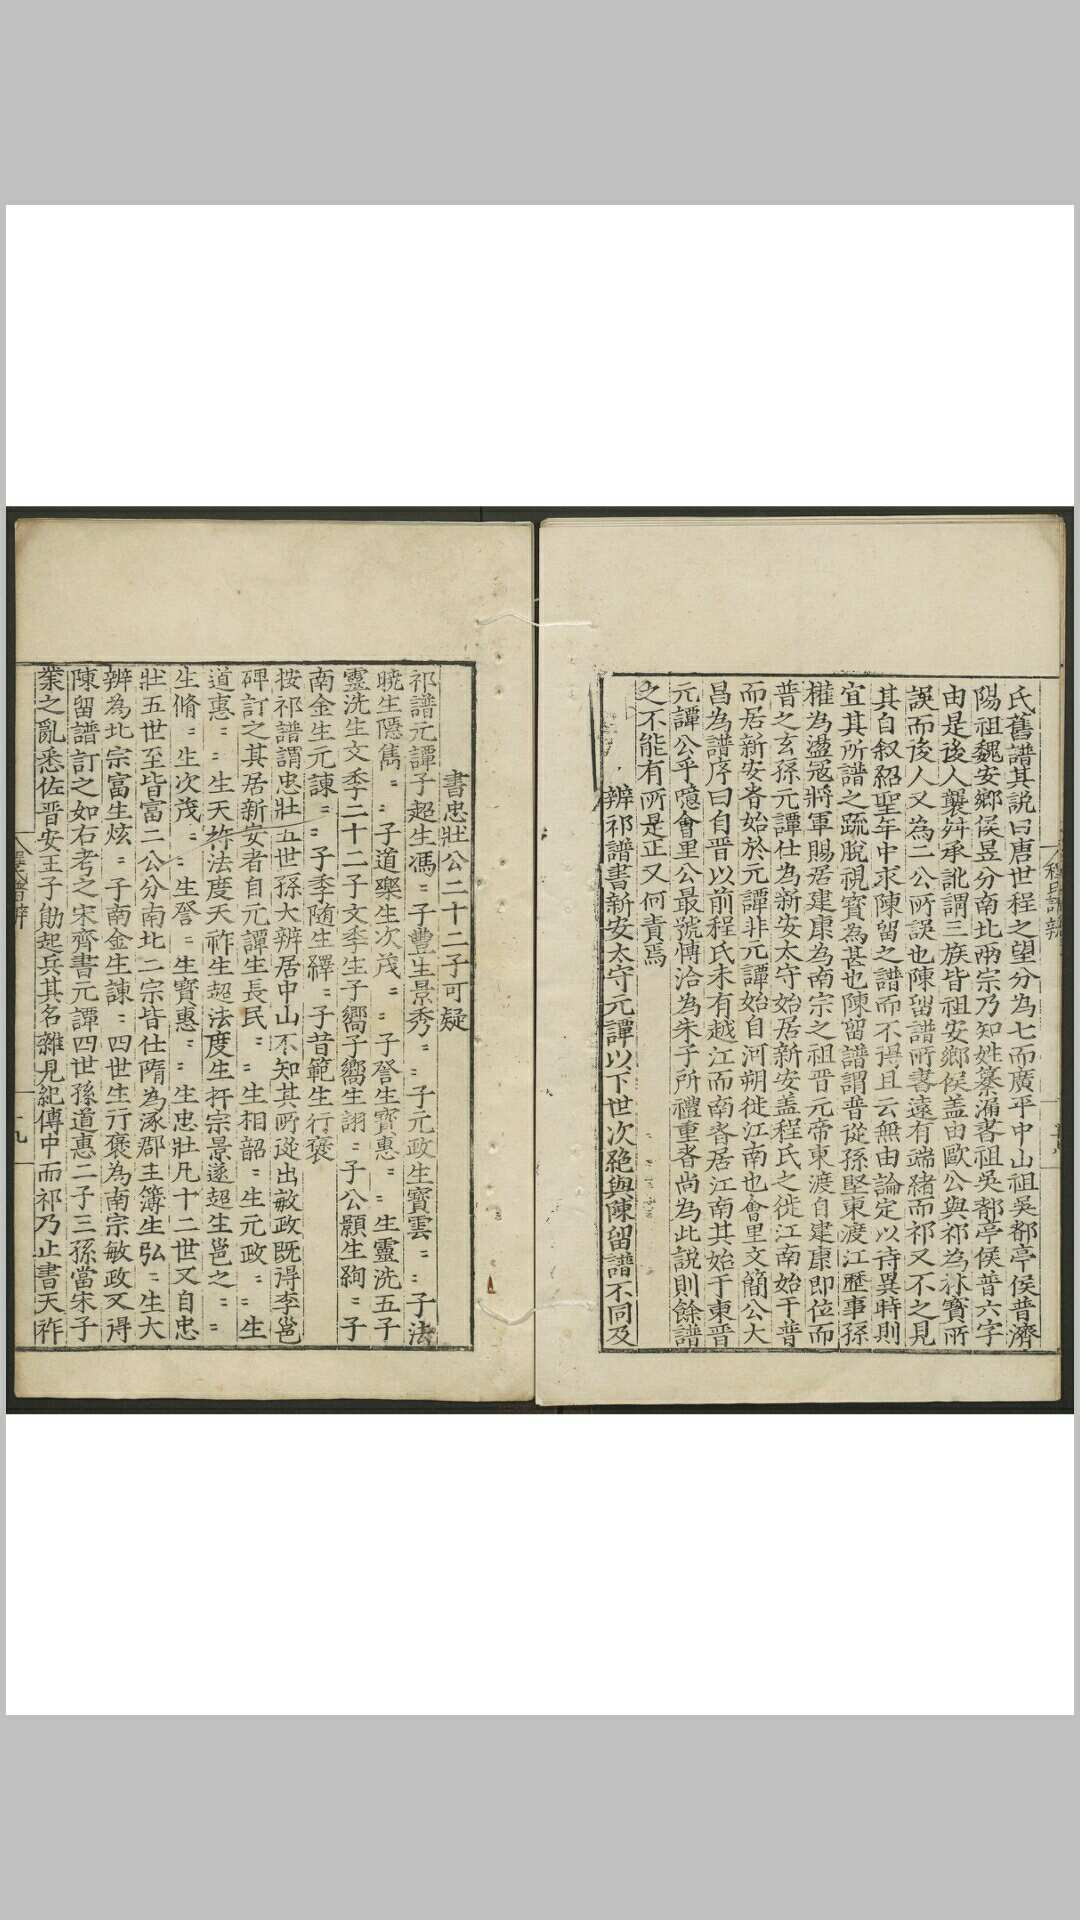 氏舊譜其說曰唐世程之望分為七而廣平中山祖吳都亭侯普濟
陽祖魏安鄉侯昱分南北兩宗乃知姓纂漏書祖吳都亭侯普六字
由是後人襲舛承訛謂三族皆祖安鄉侯盖由歐公與祁為祢寶所
誤而後人又為二公所誤也陳留譜所書遠有端緒而祁又不之見
其自叙紹聖年中求陳留之譜而不得且云無由論定以待異時則
宜其所譜之疏脫視寳為甚也陳留譜謂普從孫堅東渡江歷事孫
權為盪冦將軍賜居建康為南宗之祖晋元帝東渡自建康即位而
普之玄孫元譚仕為新安太守始居新安盖程氏之徙江南始于普
而居新安者始於元譚非元譚始自河朔徙江南也會里文簡公大
昌為譜序曰自晋以前程氏未有越江而南者居江南其始于東晋
元譚公乎噫會里公最號愽洽為朱子所禮重者尚為此說則餘譜
之不能有所是正又何責焉
辨祁譜書新安太守元譚以下世次絶與陳留譜不同及
書忠壯公二十二子可疑
祁譜元譚子超生馮〻子豊生景秀〻〻子元政生寳雲〻〻子法
曉生隱雋〻〻子道樂生次茂〻〻子詧生寳惠〻〻生靈洗五子
靈洗生文季二十二子文季生子嚮子嚮生詡〻子公顥生絢〻子
南金生元諫〻〻子季随生繹〻子昔範生行褒
按祁譜謂忠壯五世孫大辨居中山不知其所從出敏政既得李邕
碑訂之其居新安者自元譚生長民〻〻生相韶〻〻生元政〻〻生
道惠〻〻生天祚法度天祚生超法度生扞宗景遂超生邕之〻〻
生脩〻生次茂〻〻生詧〻生寳惠〻〻生忠壯凡十二世又自忠
壯五世至皆富二公分南北二宗皆仕隋為涿郡主簿生弘〻生大
辨為北宗富生炫〻子南金生諫〻四世生行褒為南宗敏政又得
陳留譜訂之如右考之宋齊書元譚四世孫道惠二子三孫當宋子
業之亂悉佐晋安王子勛起兵其名雜見紀傳中而祁乃止書天祚
程氏譜辨